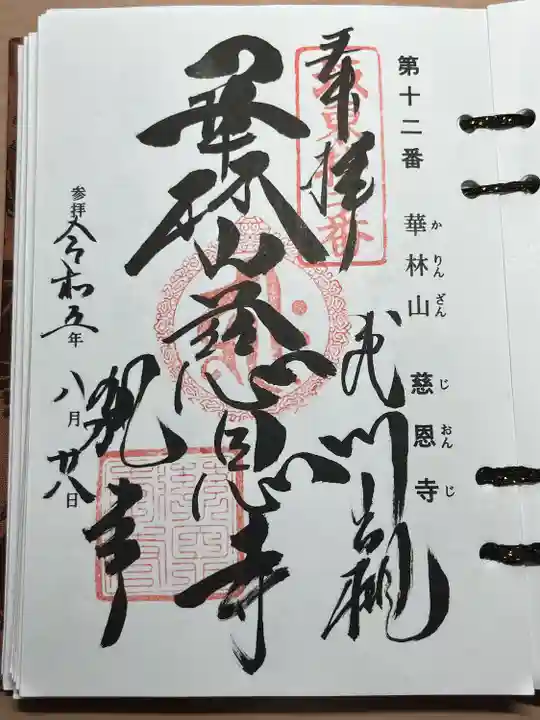 第十二番 華林山 慈恩寺
か りん ざん じ おん じ
奉拝
坂東十二番
武州岩槻
華林山慈恩寺
執事
参拝 令和五年 八月 廿八日